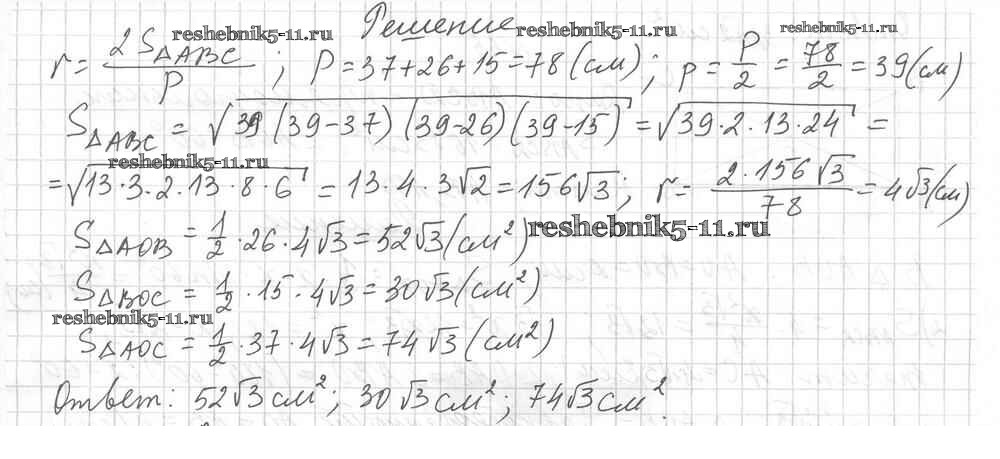 Решение
reshebnik5-11.ru
reshebnik5-11.ru
r = 2S△ABC / P ; P = 37+26+15 = 78 (см) ; p = P/2 = 78/2 = 39 (см)
S△ABC = √39 (39-37) (39-26) (39-15) = √39·2·13·24 =
reshebnik5-11.ru
= √13·3·2·13·8·6 = 13·4·3√2 = 156√3; r = 2·156√3 / 78 = 4√3 (см)
S△AOB = 1/2·26·4√3 = 52√3 (см²)
reshebnik5-11.ru
S△BOC = 1/2·15·4√3 = 30√3 (см²)
reshebnik5-11.ru
S△AOC = 1/2·37·4√3 = 74√3 (см²)
Ответ: 52√3 см²; 30√3 см²; 74√3 см².